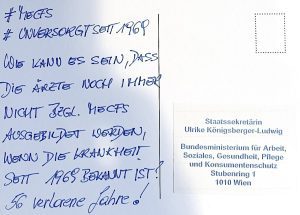 #MECFS
# UNVERSORGT SEIT 1969
WIE KANN ES SEIN, DASS
DIE ÄRZTE NOCH IMMER
NICHT BZGL. MECFS
AUSGEBILDET WERDEN,
WENN DIE KRANKHEIT
SEIT 1969 BEKANNT IST?
56 verlorene Jahre!
Staatssekretärin
Ulrike Königsberger-Ludwig
Bundesministerium für Arbeit,
Soziales, Gesundheit, Pflege
und Konsumentenschutz
Stubenring 1
1010 Wien